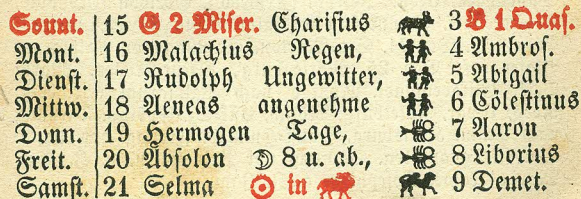 Sonnt. 15 G 2 Miser. Charisius 3 B 1 Quas.
Mont. 16 Malachius Regen, 4 Ambros.
Dienst. 17 Rudolph Ungewitter, 5 Abigail
Mittw. 18 Aeneas angenehme 6 Cölestinus
Donn. 19 Hermogen Tage, 7 Aaron
Freit. 20 Absolon ☽ 8 u. ab., 8 Liborius
Samst. 21 Selma ☉ in ♉ 9 Demet.